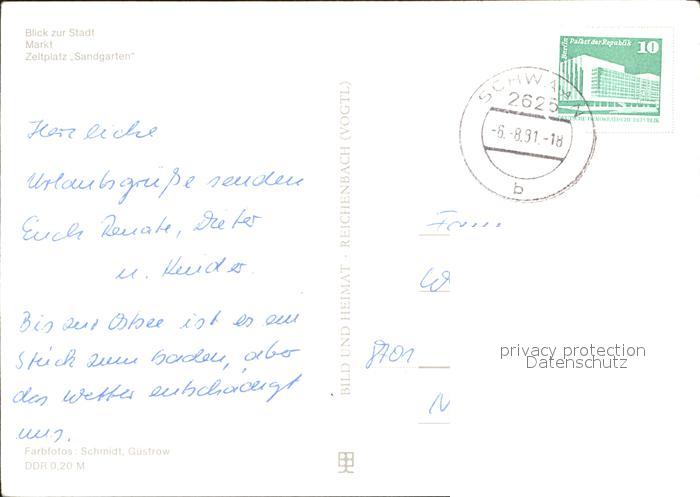 Blick zur Stadt
Markt
Zeltplatz „Sandgarten"
Herzliche
Urlaubsgrüße senden
Euch Renate, Dieter
u. Kinder.
Bis zur Ostsee ist es ein
Stück zum baden, aber
das Wetter entschädigt
uns.
Farbfotos: Schmidt, Güstrow
DDR 0,20 M
BILD UND HEIMAT · REICHENBACH (VOGTL)
Berlin Palast der Republik 10
DEUTSCHE DEMOKRATISCHE REPUBLIK
SCHWAAN
2625
-6.-8.81.-18
b
Fam.
W
8701
N
privacy protection
Datenschutz